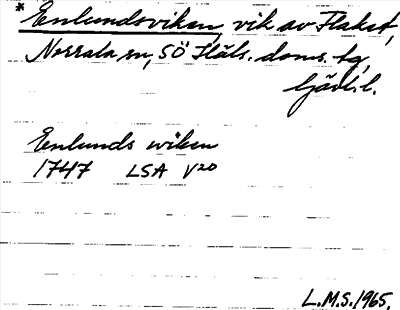 * Enlundsviken, vik av Flaket,
Norrala sn, SÖ Häls. doms. tg,
Gävl. l.
Enlunds wiken
1747 LSA V20
L.M.S. 1965.